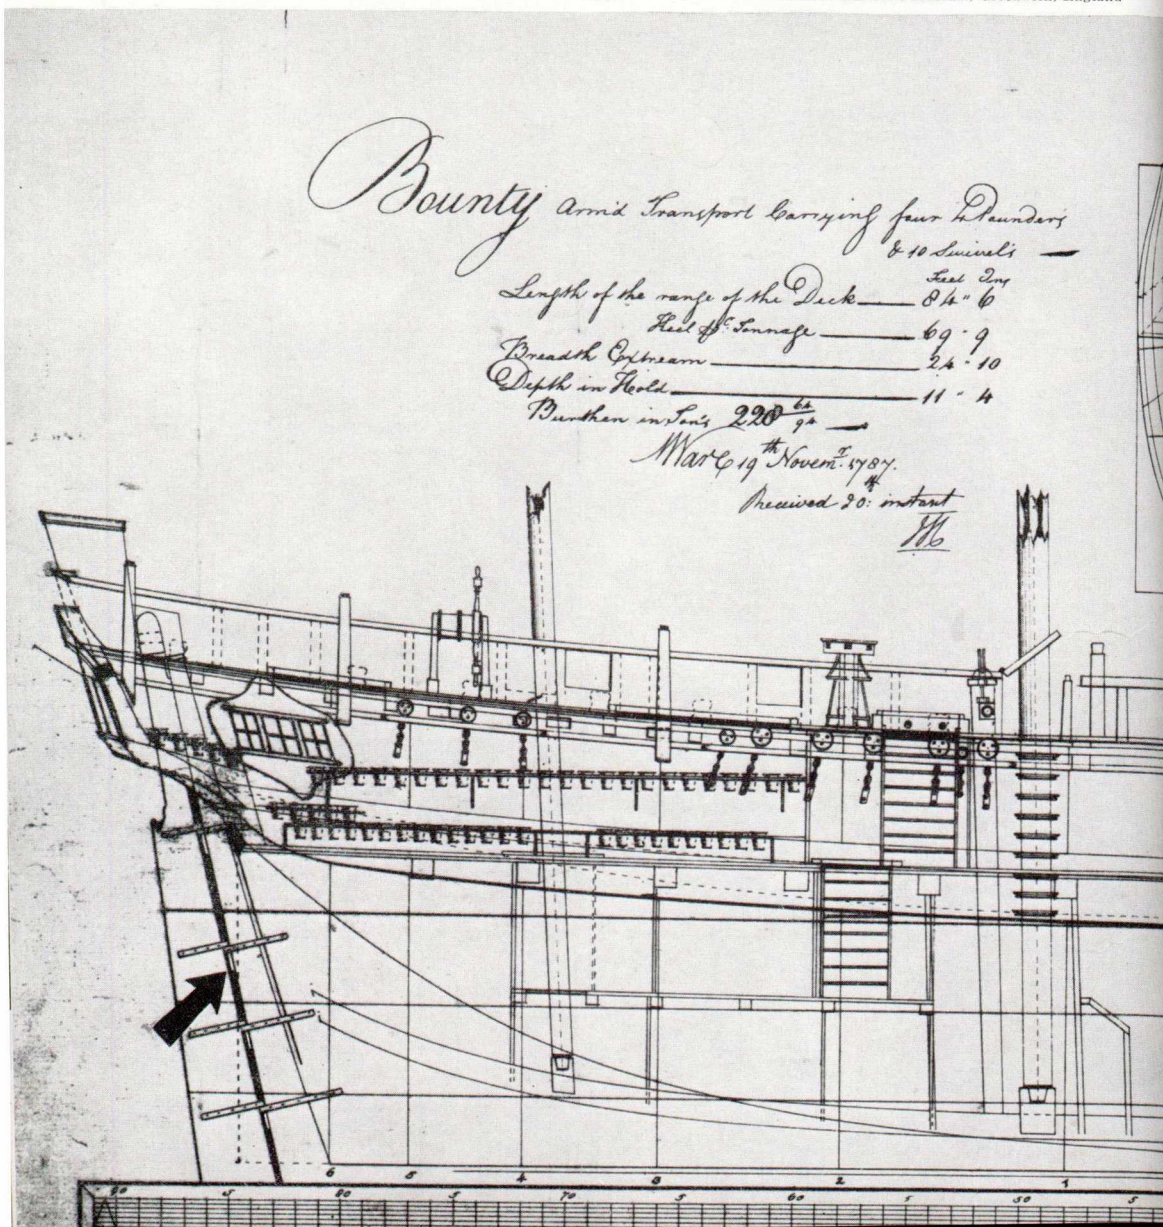 England
Bounty Arm'd Transport Carrying four 4 Pounders
& 10 Swivel's
Feet Ins
Length of the range of the Deck 84" 6
Keel for Tonnage 69 - 9
Breadth Extream 24 - 10
Depth in Hold 11 - 4
Burthen in Ton's 220 64/94
19th Novemr. 1787.
Received 20: instant
6 5 4 3 2 1
90 5 80 5 70 5 60 5 50 5